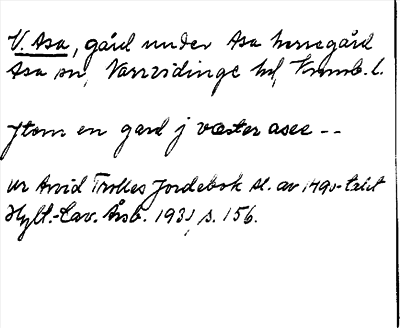 V. Asa, gård under Asa herregård
Asa sn, Norrvidinge hd, Kronob. l.
Jtem en gard j væster asee --
ur Arvid Trolles Jordebok sl. av 1490-talet
Hylt.-Cav. Årsb. 1931, s. 156.